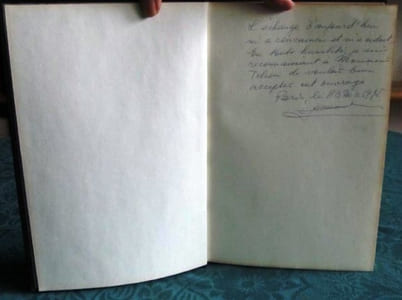 L'échange d'aujourd'hui
m'a convaincu et m'a
En toute humilité, je suis
reconnaissant à Monsieur
de vouloir bien
accepter cet ouvrage
Paris, le